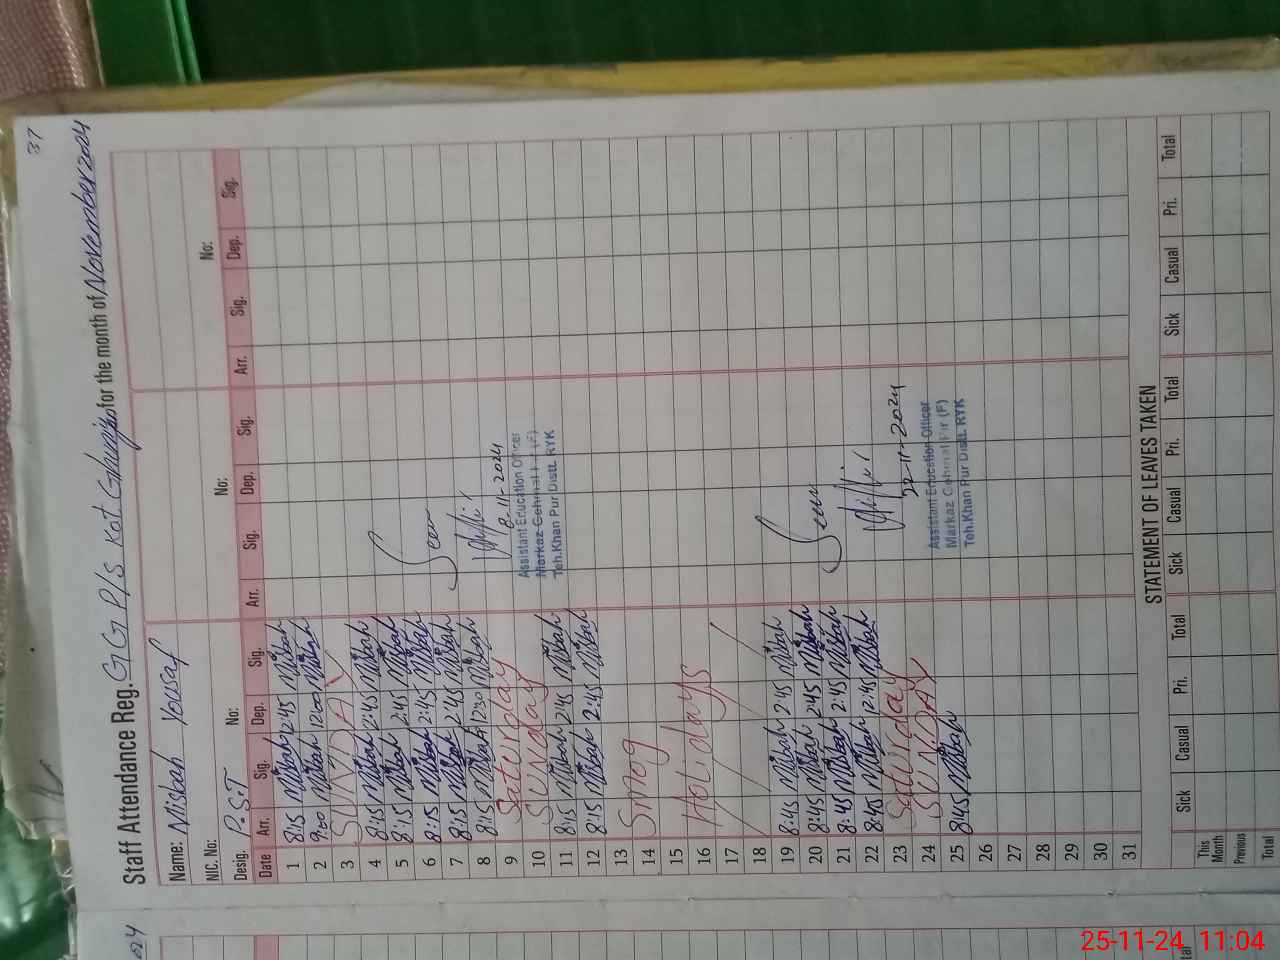 37
Staff Attendance Reg. G G P/S Kot Ghunja for the month of November 2024
Name: Nisbah Yousaf
NIC. No: No: No: No:
Desig. P.S.T
Date Arr. Sig. Dep. Sig. Arr. Sig. Dep. Sig. Arr. Sig. Dep. Sig.
1 8:15 Nisbah 12:45 Nisbah
2 9:00 Nisbah 12:00 Nisbah
3 SUNDAY
4 8:15 Nisbah 2:45 Nisbah
5 8:15 Nisbah 2:45 Nisbah
6 8:15 Nisbah 2:45 Nisbah Seen
7 8:15 Nisbah 2:45 Nisbah
8 8:15 Nisbah 12:30 Nisbah
8-11-2024
9 Saturday
Assistant Education Officer
10 Sunday
Markaz
11 8:15 Nisbah 2:45 Nisbah
Teh.Khan Pur Distt. RYK
12 8:15 Nisbah 2:45 Nisbah
13
14 Smog
15
16 Holidays
17
18
19 8:45 Nisbah 2:45 Nisbah
20 8:45 Nisbah 2:45 Nisbah Seen
21 8:45 Nisbah 2:45 Nisbah
22 8:45 Nisbah 12:45 Nisbah
22-11-2024
23 Saturday
24 SUNDAY
Assistant Education Officer
Markaz Pir (F)
25 8:45 Nisbah
Teh.Khan Pur Distt. RYK
26
27
28
29
30
31
STATEMENT OF LEAVES TAKEN
Sick Casual Pri. Total Sick Casual Pri. Total Sick Casual Pri. Total
This Month
Previous
Total
024
tal
25-11-24 11:04